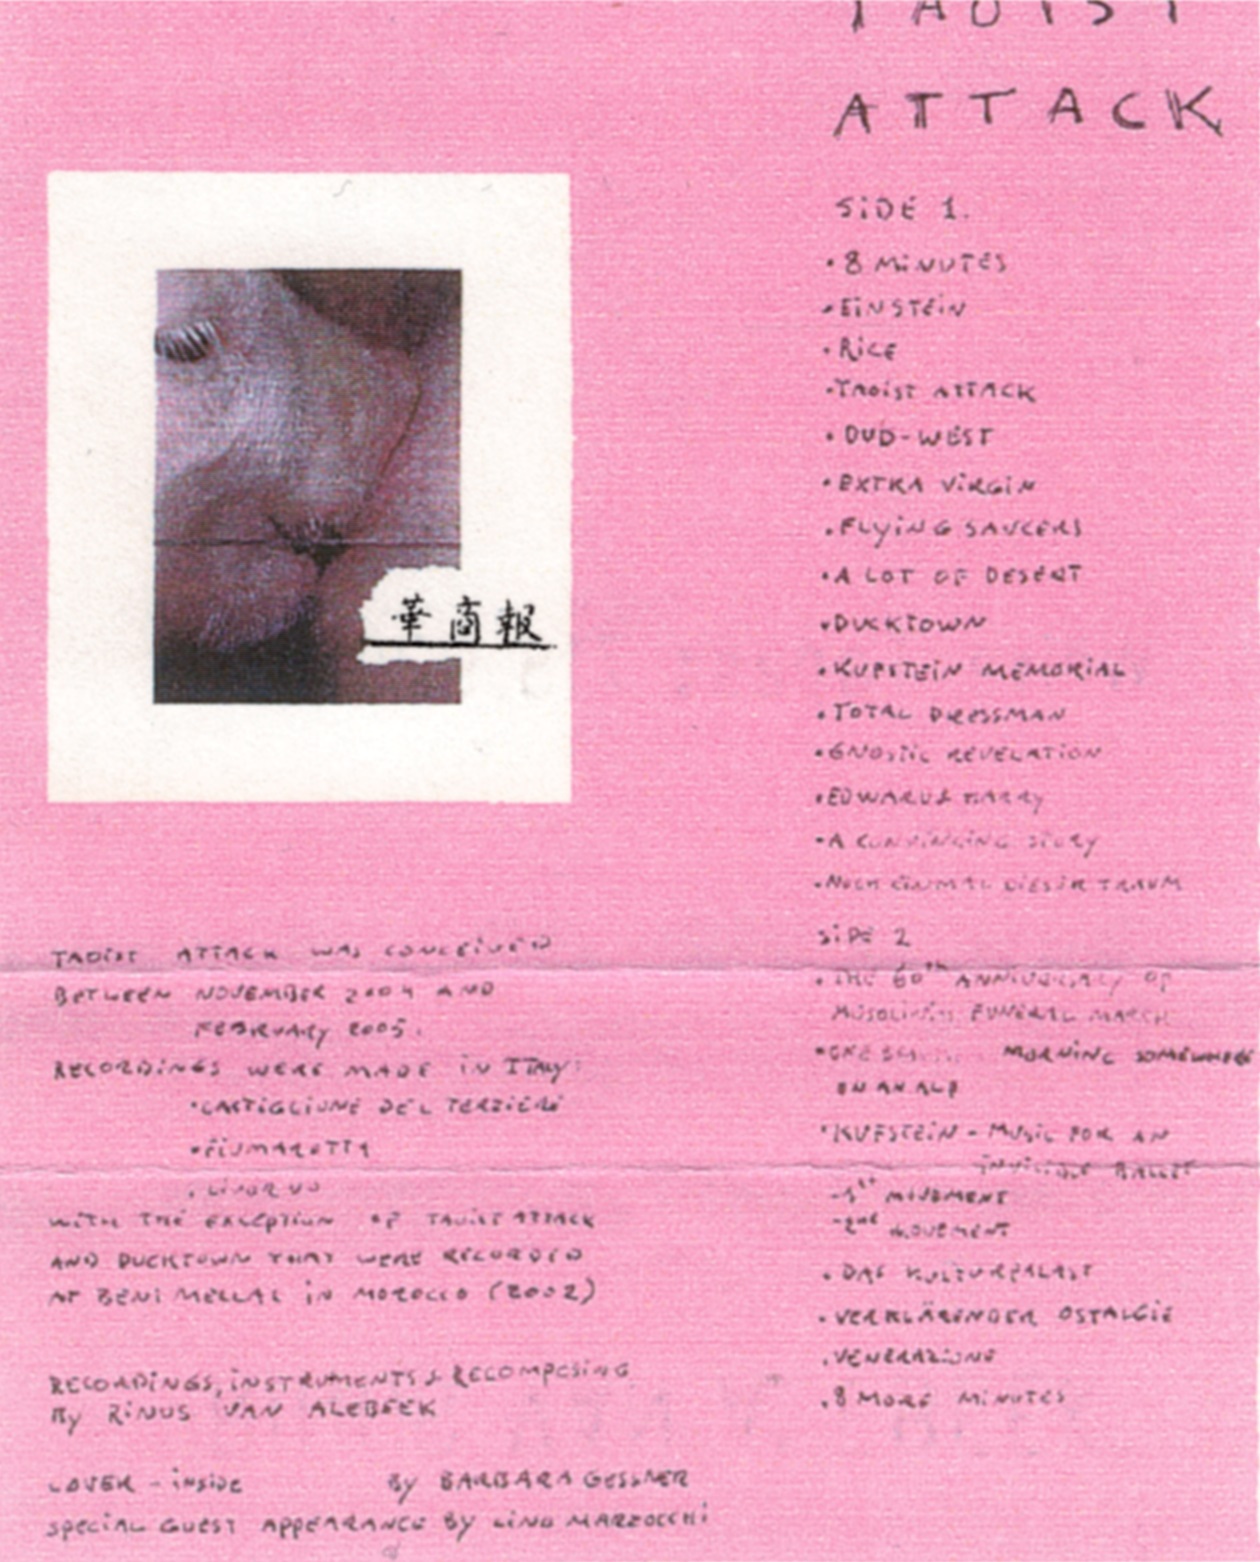 TAOIST
ATTACK
SIDE 1.
• 8 MINUTES
• EINSTEIN
• RICE
• TAOIST ATTACK
• OUD-WEST
• EXTRA VIRGIN
• FLYING SAUCERS
• A LOT OF DESERT
• DUCKTOWN
• KUFSTEIN MEMORIAL
• TOTAL DRESSMAN
• GNOSTIC REVELATION
• EDWARD & HARRY
• A CONVINCING STORY
• NOCH EINMAL DIESER TRAUM
SIDE 2
• THE 60th ANNIVERSARY OF
MUSOLINIS FUNERAL MARCH
• MORNING SOMEWHERE
ON AN ALP
• KUFSTEIN - MUSIC FOR AN
INVISIBLE BALLET
- 1st MOVEMENT
- 2nd MOVEMENT
• DAS KULTURPALAST
• VERKLÄRENDER OSTALGIE
• VENERAZIONE
• 8 MORE MINUTES
華商報
TAOIST ATTACK WAS CONCEIVED
BETWEEN NOVEMBER 2004 AND
FEBRUARY 2005.
RECORDINGS WERE MADE IN ITALY:
• CASTIGLIONE DEL TERZIERE
• FIUMARETTA
• LIVORNO
WITH THE EXCEPTION OF TAOIST ATTACK
AND DUCKTOWN THAT WERE RECORDED
AT BENI MELLAL IN MOROCCO (2002)
RECORDINGS, INSTRUMENTS & RECOMPOSING
BY RINUS VAN ALEBEEK
COVER - INSIDE BY BARBARA GESSNER
SPECIAL GUEST APPEARANCE BY LINO MARZOCCHI